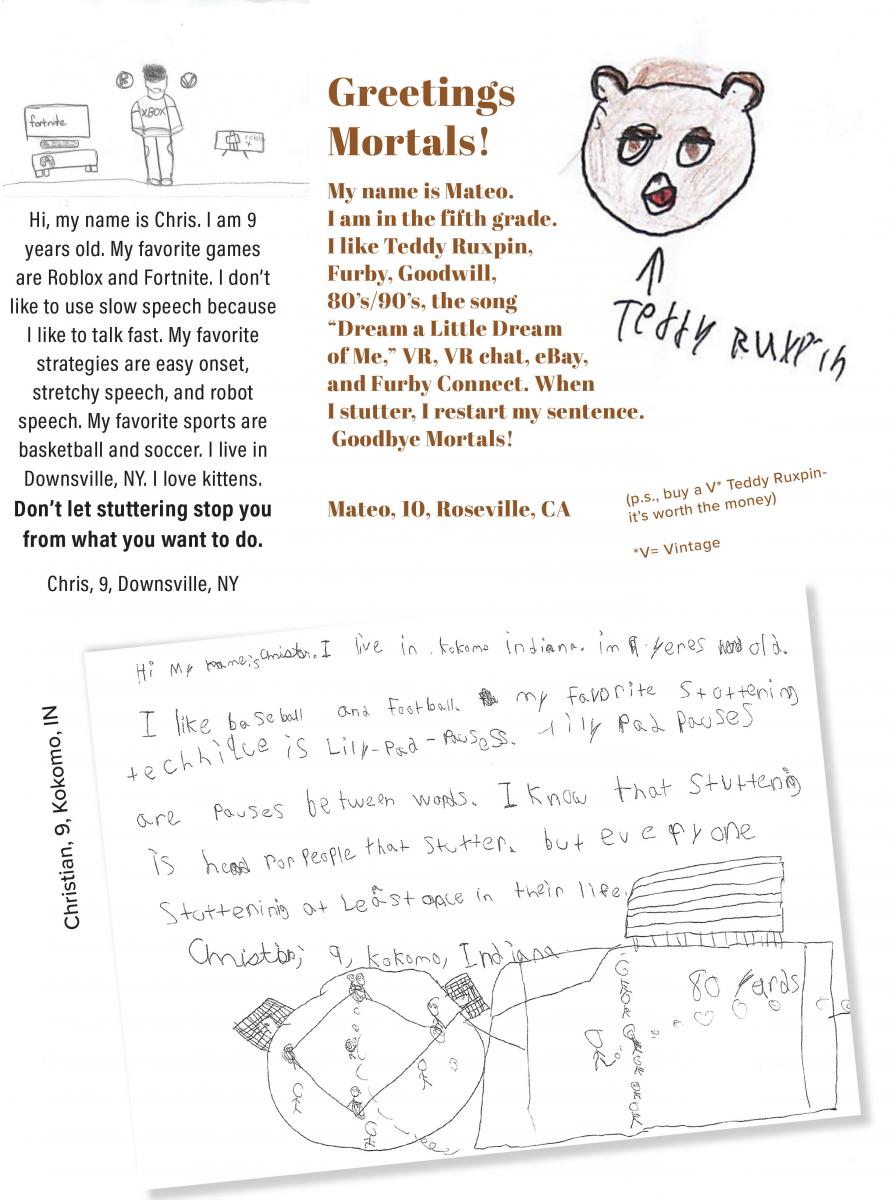 R
V
XBOX
fortnite
roblo
x
Hi, my name is Chris. I am 9
years old. My favorite games
are Roblox and Fortnite. I don't
like to use slow speech because
I like to talk fast. My favorite
strategies are easy onset,
stretchy speech, and robot
speech. My favorite sports are
basketball and soccer. I live in
Downsville, NY. I love kittens.
Don't let stuttering stop you
from what you want to do.
Chris, 9, Downsville, NY
Greetings
Mortals!
My name is Mateo.
I am in the fifth grade.
I like Teddy Ruxpin,
Furby, Goodwill,
80's/90's, the song
“Dream a Little Dream
of Me,” VR, VR chat, eBay,
and Furby Connect. When
I stutter, I restart my sentence.
Goodbye Mortals!
Mateo, 10, Roseville, CA
Teddy Ruxpin
(p.s., buy a V* Teddy Ruxpin-
it's worth the money)
*V= Vintage
Christian, 9, Kokomo, IN
Hi My name is Christian. I live in Kokomo indiana. im 9 yeres old.
I like baseball and football. my favorite Stuttening
techniqce is Lily-Pad-Pauses. Lily Pad Pauses
are Pauses between words. I know that Stuttening
is head for People that Stutter. but everyone
Stuttening at Least once in their life.
Christian, 9, Kokomo, Indiana
80 Yards